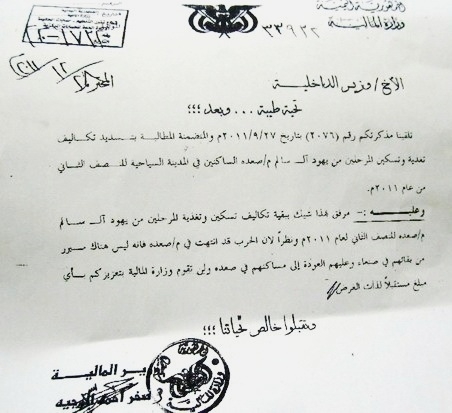 الجمهورية اليمنية
وزارة المالية
٣٣٩٣٢
الأخ/ وزير الداخلية
المحترم
تحية طيبة ... وبعد ؛؛؛
تلقينا مذكرتكم رقم (٢٠٧٦) بتاريخ ٢٠١١/٩/٢٧م والمتضمنة المطالبة بتسديد تكاليف
تغذية وتسكين المرحلين من يهود آل سالم م/صعده الساكنين في المدينة السياحية للنصف الثاني
من عام ٢٠١١م.
وعليه :- مرفق لهذا شيك ببقية تكاليف تسكين وتغذية المرحلين من يهود آل سالم
م/صعده للنصف الثاني لعام ٢٠١١م ونظراً لان الحرب قد انتهت في م/صعده فانه ليس هناك مبرر
من بقائهم في صنعاء وعليهم العودة إلى مساكنهم في صعده ولن تقوم وزارة المالية بتعزيزكم بأي
مبلغ مستقبلاً لذات الغرض //
وتقبلوا خالص تحياتنا ؛؛؛
وزير المالية
صخر أحمد الوجيه